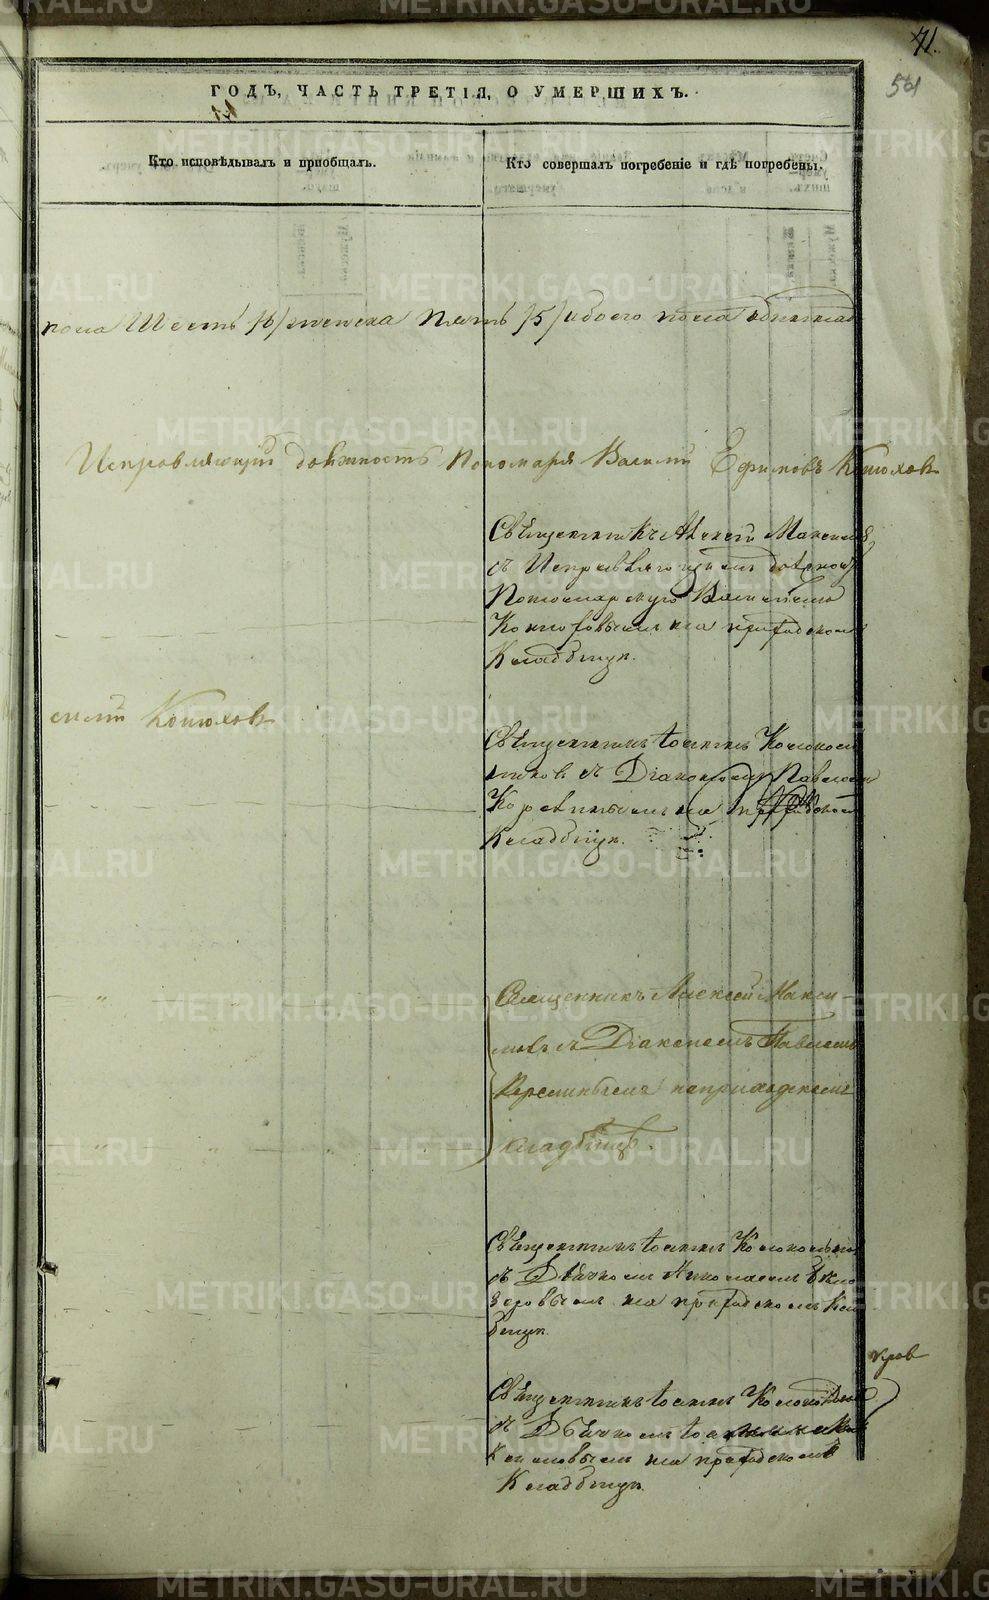 71.
501
ГОДЪ, ЧАСТЬ ТРЕТІЯ, О УМЕРШИХЪ.
Кто исповѣдывалъ и пріобщалъ.
Кто совершалъ погребеніе и гдѣ погребены.
пола Шесть /6/ женска Пять /5/ обоего пола одиннадц
Исправляющій должность Пономаря Василій Ефимовъ Конюхов
Священникъ Алексѣй Максимов
съ Исправляющимъ должност
Пономарскую Василіемъ
Конюховымъ на приходскомъ
Кладбищѣ.
силій Конюхов
Священникъ Іоаннъ Колокол
ников съ Діакономъ Павлом
на приходском
Кладбищѣ.
Священникъ Алексей Макси
мовъ съ Діакономъ Павломъ
на приходскомъ
кладбищѣ.
Священникъ Іоаннъ Колокольн
съ Дьячкомъ Николаемъ Бѣло
зеровымъ на приходскомъ Кла
бищѣ.
Священникъ Іоаннъ
съ Дьячкомъ
на приходскомъ
Кладбищѣ.
METRIKI.GASO-URAL.RU